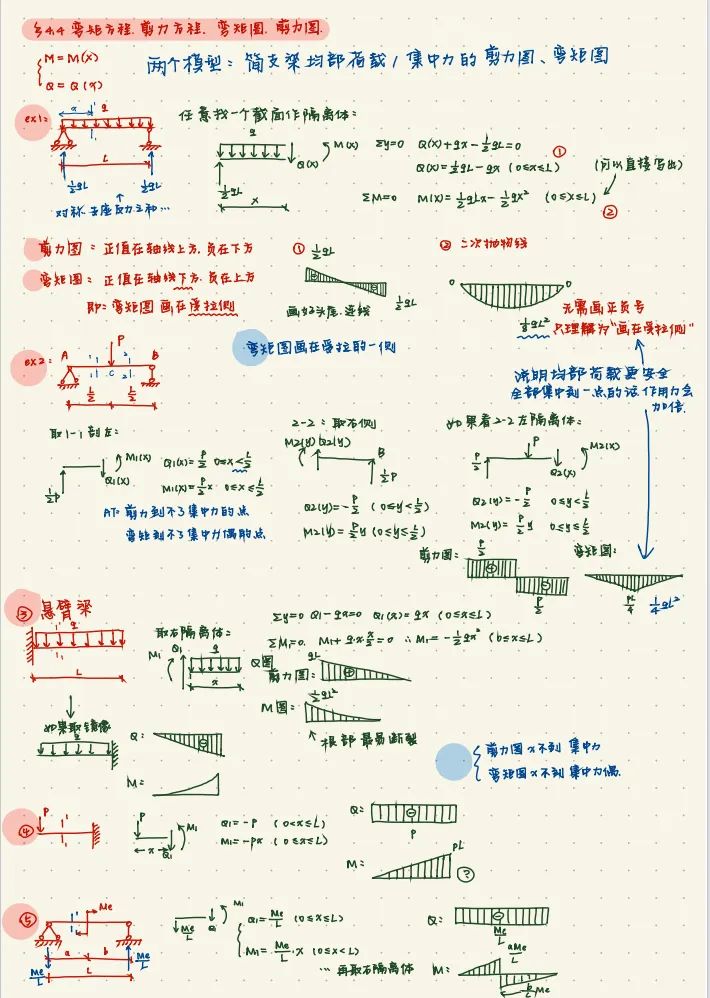 §4.4 弯矩方程. 剪力方程. 弯矩图. 剪力图.
M = M(x)
Q = Q(x)
两个模型: 简支梁均部荷载/集中力的剪力图、弯矩图
ex1:
x
q
L
½qL
½qL
对称 去座反力之和…
任意找一个截面作隔离体:
q
M(x)
Q(x)
½qL
x
Σy=0 Q(x)+qx-½qL=0
Q(x)=½qL-qx (0≤x≤L) ①
(可以直接写出)
ΣM=0 M(x)=½qLx-½qx² (0≤x≤L)
②
剪力图: 正值在轴线上方. 负在下方
弯矩图: 正值在轴线下方. 负在上方
即: 弯矩图画在受拉侧
① ½qL
½qL
画好头尾. 连线
② 二次抛物线
0
0
⅛qL²
无需画正负号
只理解为"画在受拉侧"
弯矩图画在受拉的一侧
说明均部荷载更安全
全部集中到一点的话作用力会
加倍.
ex2:
P
A
B
C
1
1
2
2
L/2
L/2
取1-1 割左:
M1(x)
Q1(x)
½P
Q1(x)=P/2 0≤x<L/2
M1(x)=P/2x 0≤x≤L/2
AT: 剪力到不了集中力的点
弯矩到不了集中力偶的点
2-2: 取右侧
M2(y) Q2(y)
B
½P
Q2(y)=-P/2 (0≤y<L/2)
M2(y)=P/2y (0≤y≤L/2)
如果看2-2左隔离体:
P
P/2
M2(x)
Q2(x)
Q2(y)=-P/2 0≤y<L/2
M2(y)=P/2 y 0≤y≤L/2
剪力图:
P/2
⊕
⊖
P/2
弯矩图:
PL/4
¼qL²
③ 悬臂梁
q
L
取右隔离体:
M1
Q1
q
x
Σy=0 Q1-qx=0 Q1(x)=qx (0≤x≤L)
ΣM1=0. M1+q·x·x/2=0 ∴M1=-½qx² (0≤x≤L)
Q图
剪力图:
qL
⊕
M图:
½qL²
根部最易断裂
如果取镜像
q
Q:
⊖
M=
剪力图x不到 集中力
弯矩图x不到 集中力偶.
④
P
1
1
P
M1
x
Q1
Q1=-P (0<x≤L)
M1=-Px (0≤x≤L)
Q=
⊖
P
M=
PL
?
⑤
Me
a
b
L
Me/L
Me/L
M1
Me/L
Q1
Q1=Me/L (0≤x≤L)
M1=Me/L·x (0≤x<L)
… 再取右隔离体
Q=
⊖
Me/L
M=
aMe/L
b/L Me